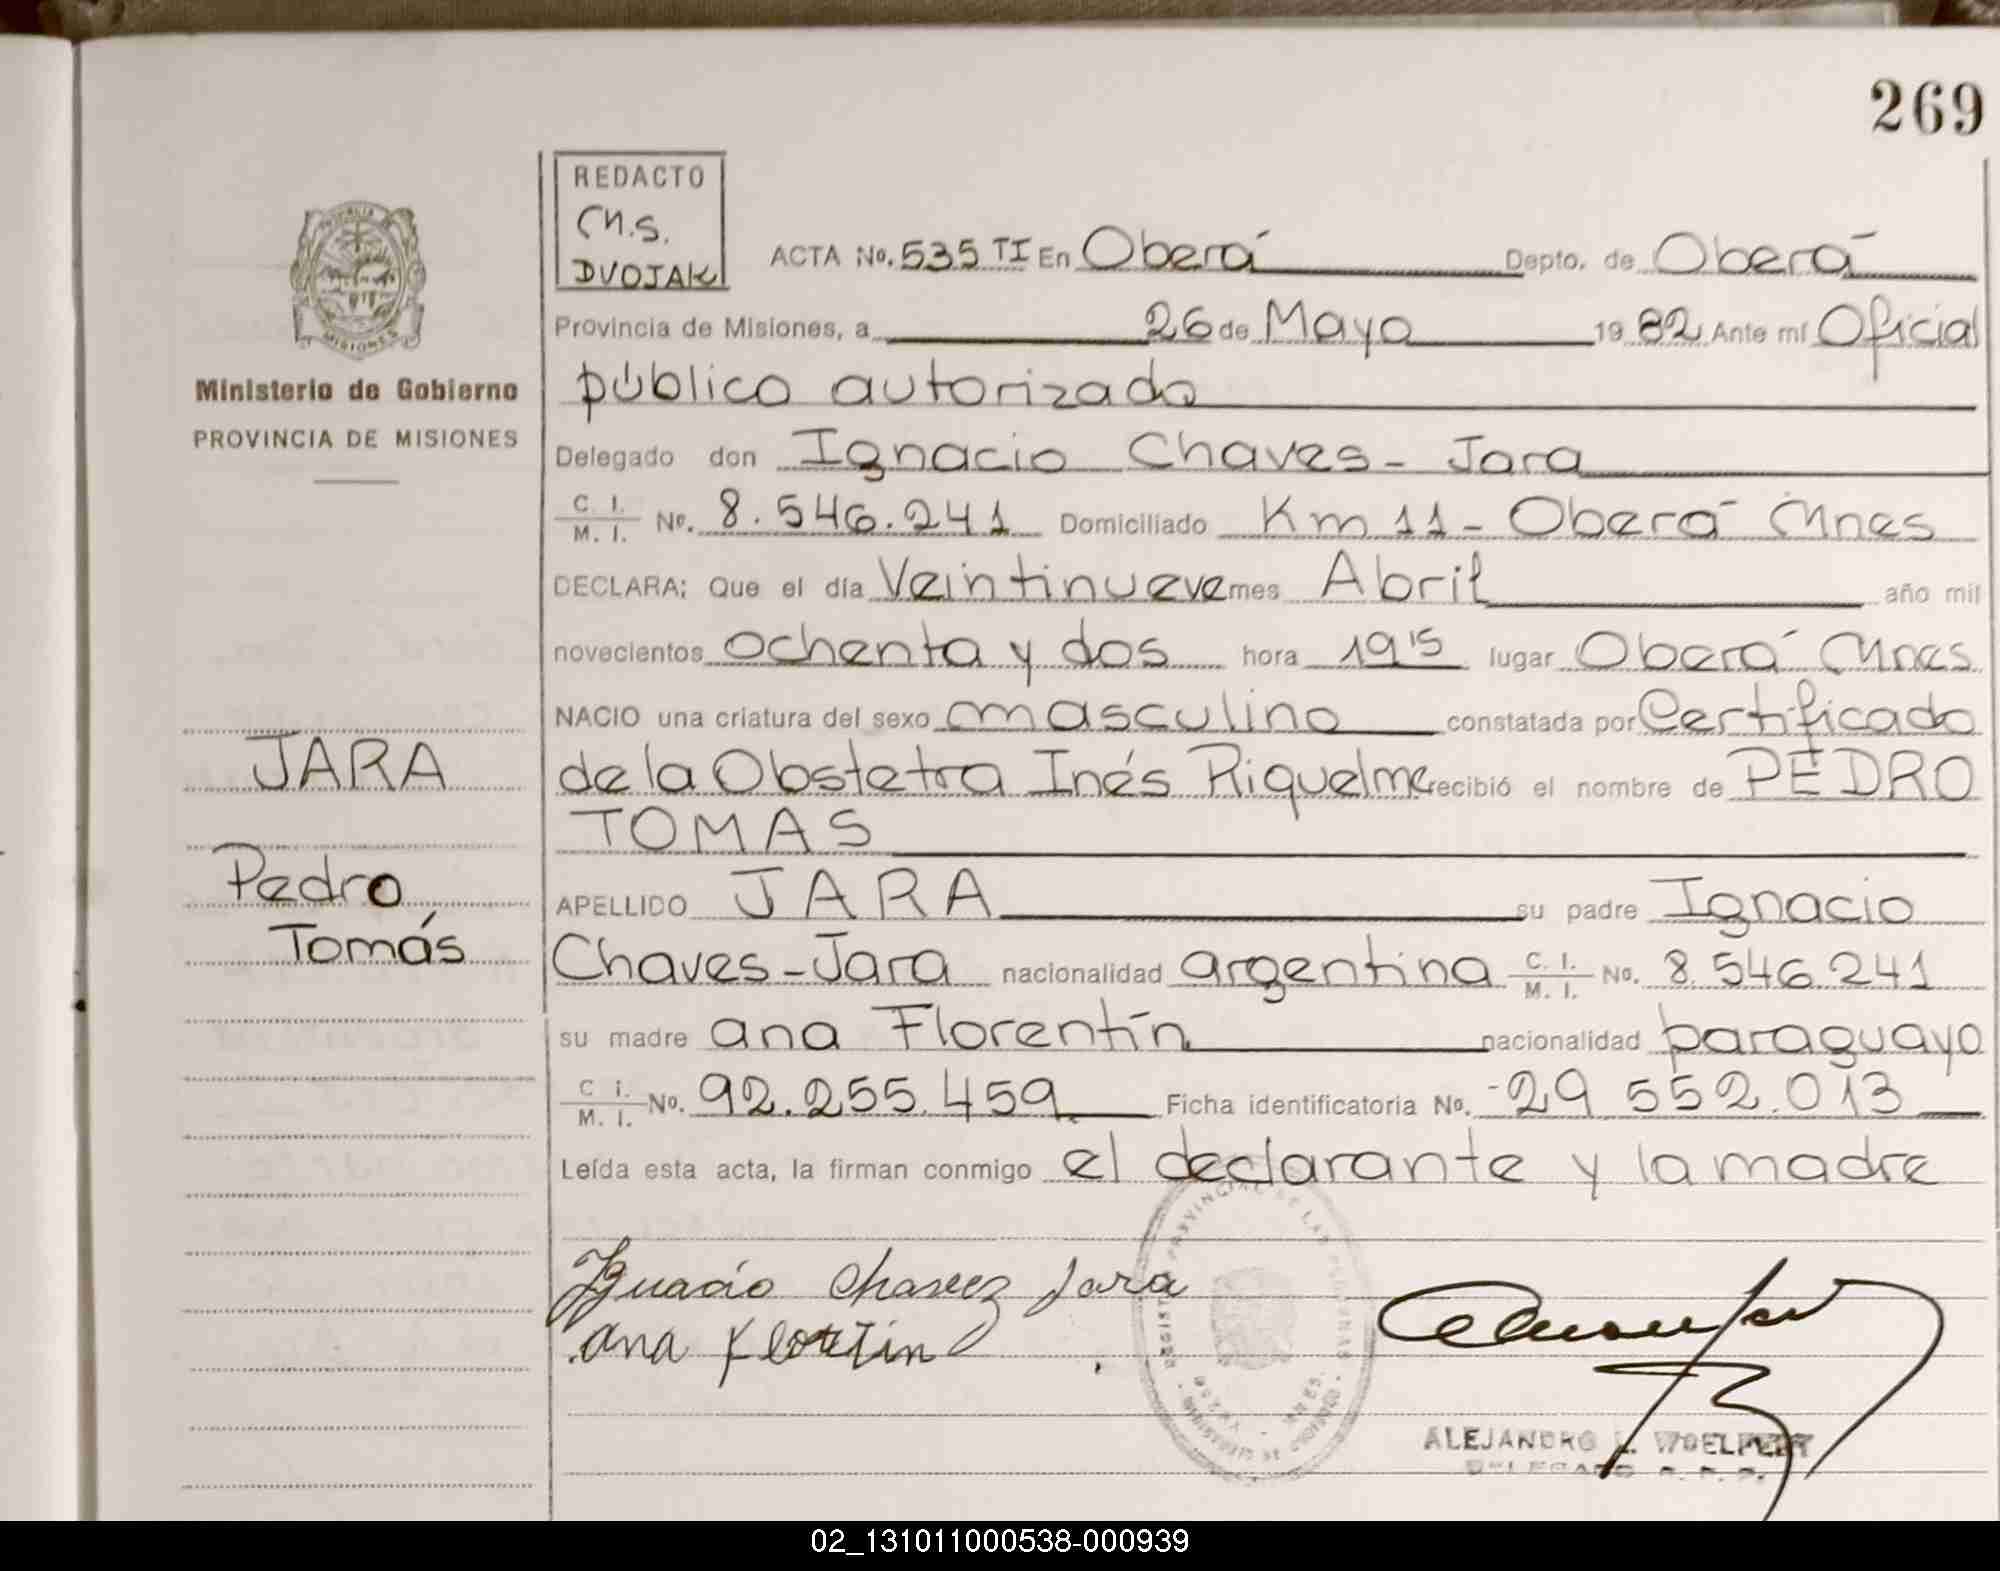 269
REDACTO
M.S.
DVOJAK
ACTA No. 535 TI En Oberá Depto. de Oberá
Provincia de Misiones, a 26 de Mayo 1982 Ante mí Oficial
público autorizado
Delegado don Ignacio Chaves - Jara
C. I. / M. I. No. 8.546.241 Domiciliado Km 11 - Oberá Mnes
DECLARA: Que el día Veintinueve mes Abril año mil
novecientos ochenta y dos hora 19 15 lugar Oberá Mnes
NACIO una criatura del sexo masculino constatada por Certificado
de la Obstetra Inés Riquelme recibió el nombre de PEDRO
TOMAS
APELLIDO JARA su padre Ignacio
Chaves - Jara nacionalidad argentina C. I. / M. I. No. 8.546.241
su madre ana Florentín nacionalidad paraguaya
C. I. / M. I. No. 92.255.459 Ficha identificatoria No. 29 552.013
Leída esta acta, la firman conmigo el declarante y la madre
Ignacio Chavez Jara
ana Floretin
ALEJANDRO L. WOELFERT
DELEGADO R. P. P.
PROVINCIA
MISIONES
Ministerio de Gobierno
PROVINCIA DE MISIONES
JARA
Pedro
Tomás
02_131011000538-000939